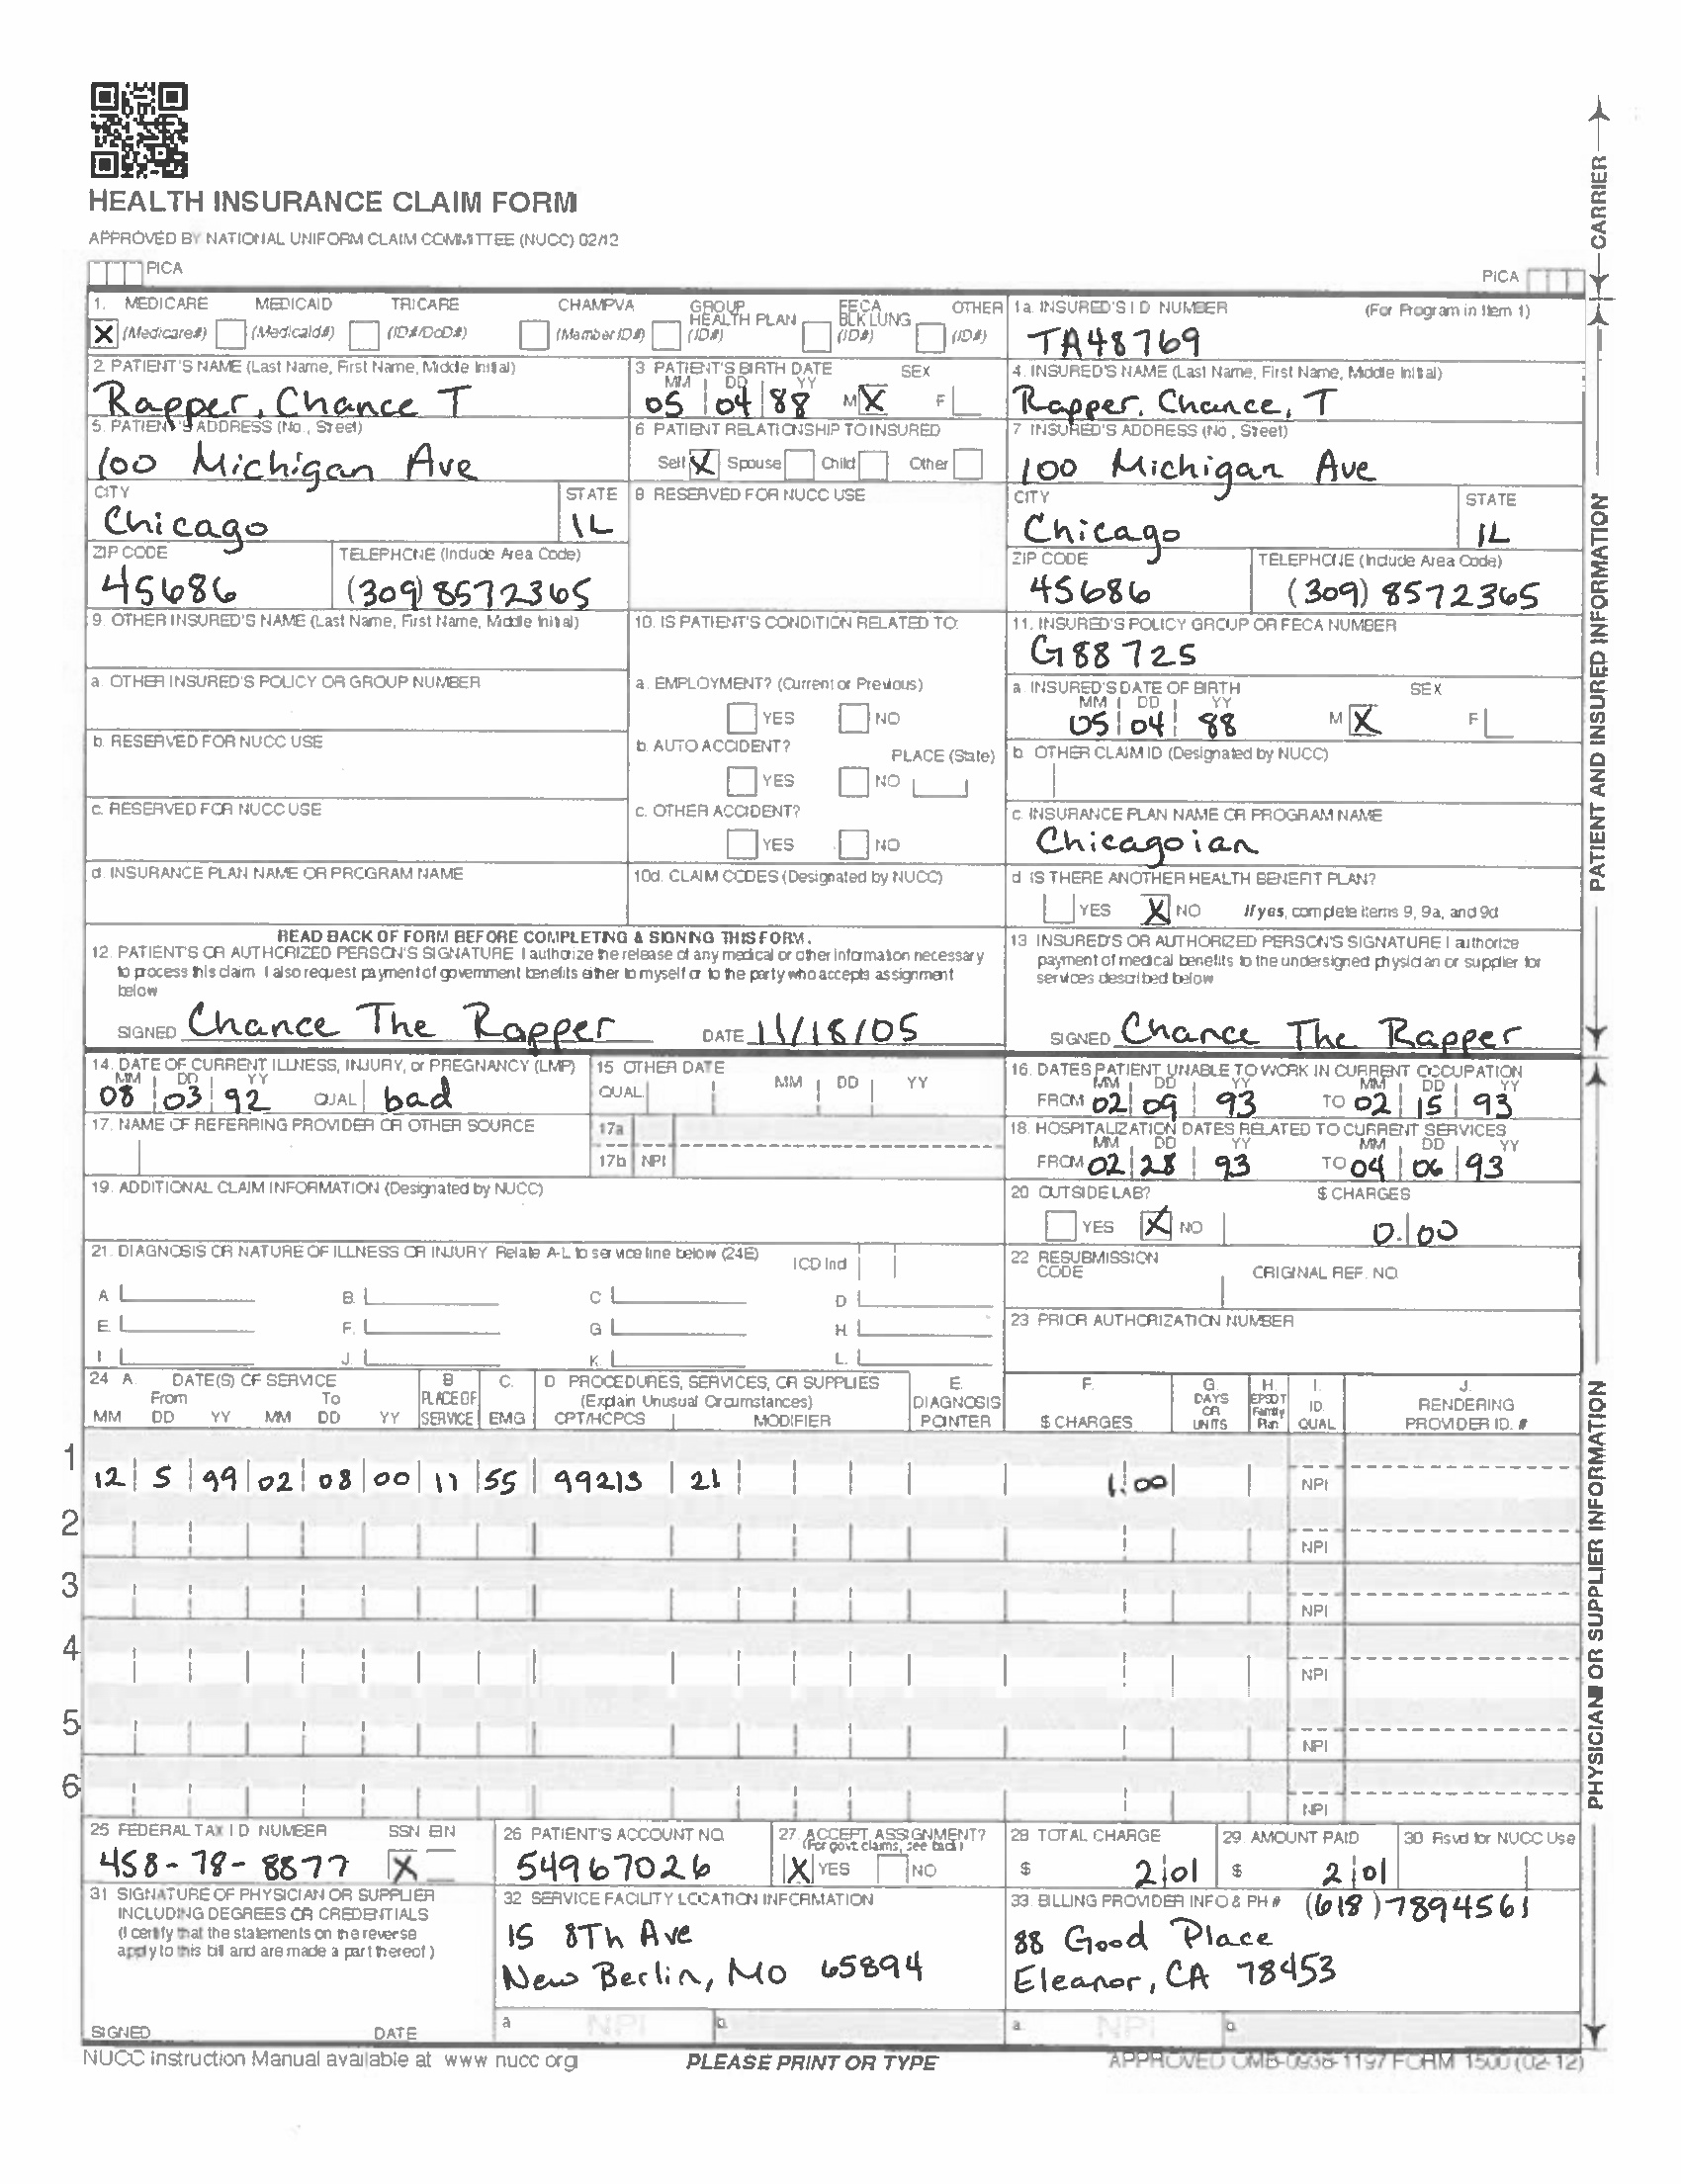 HEALTH INSURANCE CLAIM FORM
APPROVED BY NATIONAL UNIFORM CLAIM COMMITTEE (NUCC) 02/12
PICA PICA
CARRIER
1. MEDICARE MEDICAID TRICARE CHAMPVA GROUP HEALTH PLAN FECA BLK LUNG OTHER
X (Medicare#) (Medicaid#) (ID#/DoD#) (Member ID#) (ID#) (ID#) (ID#)
1a. INSURED'S I.D. NUMBER (For Program in Item 1)
TA48769
2. PATIENT'S NAME (Last Name, First Name, Middle Initial)
Rapper, Chance T
3 PATIENT'S BIRTH DATE SEX
MM DD YY
05 04 88 M X F
4. INSURED'S NAME (Last Name, First Name, Middle Initial)
Rapper, Chance, T
5. PATIENT'S ADDRESS (No., Street)
100 Michigan Ave
6 PATIENT RELATIONSHIP TO INSURED
Self X Spouse Child Other
7 INSURED'S ADDRESS (No., Street)
100 Michigan Ave
CITY STATE
Chicago IL
8 RESERVED FOR NUCC USE
CITY STATE
Chicago IL
ZIP CODE TELEPHONE (Include Area Code)
45686 (309) 8572365
ZIP CODE TELEPHONE (Include Area Code)
45686 (309) 8572365
9. OTHER INSURED'S NAME (Last Name, First Name, Middle Initial)
10. IS PATIENT'S CONDITION RELATED TO:
11. INSURED'S POLICY GROUP OR FECA NUMBER
G88725
a. OTHER INSURED'S POLICY OR GROUP NUMBER
a. EMPLOYMENT? (Current or Previous)
YES NO
a. INSURED'S DATE OF BIRTH SEX
MM DD YY
05 04 88 M X F
b. RESERVED FOR NUCC USE
b. AUTO ACCIDENT? PLACE (State)
YES NO
b. OTHER CLAIM ID (Designated by NUCC)
c. RESERVED FOR NUCC USE
c. OTHER ACCIDENT?
YES NO
c. INSURANCE PLAN NAME OR PROGRAM NAME
Chicagoian
d. INSURANCE PLAN NAME OR PROGRAM NAME
10d. CLAIM CODES (Designated by NUCC)
d. IS THERE ANOTHER HEALTH BENEFIT PLAN?
YES X NO If yes, complete items 9, 9a, and 9d
PATIENT AND INSURED INFORMATION
READ BACK OF FORM BEFORE COMPLETING & SIGNING THIS FORM.
12. PATIENT'S OR AUTHORIZED PERSON'S SIGNATURE I authorize the release of any medical or other information necessary
to process this claim. I also request payment of government benefits either to myself or to the party who accepts assignment
below
SIGNED Chance The Rapper DATE 11/18/05
13 INSURED'S OR AUTHORIZED PERSON'S SIGNATURE I authorize
payment of medical benefits to the undersigned physician or supplier for
services described below
SIGNED Chance The Rapper
14. DATE OF CURRENT ILLNESS, INJURY, or PREGNANCY (LMP)
MM DD YY
08 03 92 QUAL bad
15 OTHER DATE
QUAL MM DD YY
16. DATES PATIENT UNABLE TO WORK IN CURRENT OCCUPATION
MM DD YY MM DD YY
FROM 02 09 93 TO 02 15 93
17. NAME OF REFERRING PROVIDER OR OTHER SOURCE
17a
17b NPI
18. HOSPITALIZATION DATES RELATED TO CURRENT SERVICES
MM DD YY MM DD YY
FROM 02 28 93 TO 04 06 93
19. ADDITIONAL CLAIM INFORMATION (Designated by NUCC)
20 OUTSIDE LAB? $ CHARGES
YES X NO 0.00
21. DIAGNOSIS OR NATURE OF ILLNESS OR INJURY Relate A-L to service line below (24E) ICD Ind
A B. C D
E. F. G H.
I. J. K. L.
22 RESUBMISSION CODE ORIGINAL REF. NO.
23 PRIOR AUTHORIZATION NUMBER
24 A DATE(S) OF SERVICE B C. D PROCEDURES, SERVICES, OR SUPPLIES E. F. G. H. I. J.
From To PLACE OF (Explain Unusual Circumstances) DIAGNOSIS DAYS OR UNITS EPSDT Family Plan ID. QUAL RENDERING
MM DD YY MM DD YY SERVICE EMG CPT/HCPCS MODIFIER POINTER $ CHARGES PROVIDER ID. #
1 12 5 99 02 08 00 11 55 99213 21 1.00 NPI
2 NPI
3 NPI
4 NPI
5 NPI
6 NPI
25 FEDERAL TAX I.D. NUMBER SSN EIN
458-78-8877 X
26 PATIENT'S ACCOUNT NO.
54967026
27. ACCEPT ASSIGNMENT?
(For govt. claims, see back)
X YES NO
28 TOTAL CHARGE
$ 2 01
29 AMOUNT PAID
$ 2 01
30 Rsvd for NUCC Use
31 SIGNATURE OF PHYSICIAN OR SUPPLIER
INCLUDING DEGREES OR CREDENTIALS
(I certify that the statements on the reverse
apply to this bill and are made a part thereof.)
SIGNED DATE
32 SERVICE FACILITY LOCATION INFORMATION
15 8Th Ave
New Berlin, MO 65894
a NPI b.
33 BILLING PROVIDER INFO & PH # (618) 7894561
88 Good Place
Eleanor, CA 78453
a. NPI b.
PHYSICIAN OR SUPPLIER INFORMATION
NUCC Instruction Manual available at www nucc org PLEASE PRINT OR TYPE APPROVED OMB-0938-1197 FORM 1500 (02-12)